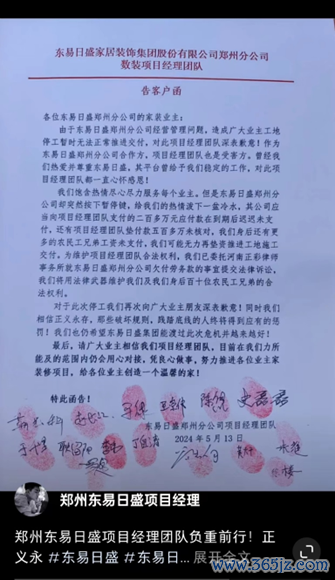 东易日盛家居装饰集团股份有限公司郑州分公司
数装项目经理团队
告客户函
各位东易日盛郑州分公司的家装业主:
由于东易日盛郑州分公司经营管理问题,造成广大业主工地
停工暂时无法正常推进交付,对此项目经理团队深表歉意!作为
东易日盛郑州分公司合作方,项目经理团队也是受害方。曾经我
们热爱并尊重东易日盛,其平台曾给于我们稳定的工作,对此项
目经理团队都一直心怀感恩!
我们饱含热情尽心尽力服务每个业主,但是东易日盛郑州分
公司却突然按下暂停键,给我们的热情泼下一盆冷水,其公司应
当向项目经理团队支付的二百多万元应付款在到期后迟迟未支
付,还有项目经理团队垫付款五百多万未核对。我们身后还有更
多的农民工兄弟工资未支付,我们可能无力再垫资推进工地施工
交付。为维护项目经理团队合法权利,我们已委托河南正彩律师
事务所就东易日盛郑州分公司欠付劳务款的事宜提交法律诉讼,
我们将用法律武器维护我们及我们身后百十位农民工兄弟的合
法权利。
对于此次停工我们再次向广大业主朋友深表歉意!同时我们
相信正义永存,那些破坏规则、践踏底线的人终将得到应有的惩
罚!我们也仍希望东易日盛集团能渡过此次危机并越来越好!
最后,请广大业主相信我们项目经理团队,目前在我们力所
能及的范围内仍会用心对接,凭良心做事,努力推进各位业主家
装修项目,给各位业主创造一个温馨的家!
特此函告!
东易日盛郑州分公司项目经理团队
2024年5月13日
郑州东易日盛项目经理
郑州东易日盛项目经理团队负重前行!正
义永 #东易日盛 #东易日... 展开全文
www.365jz.com